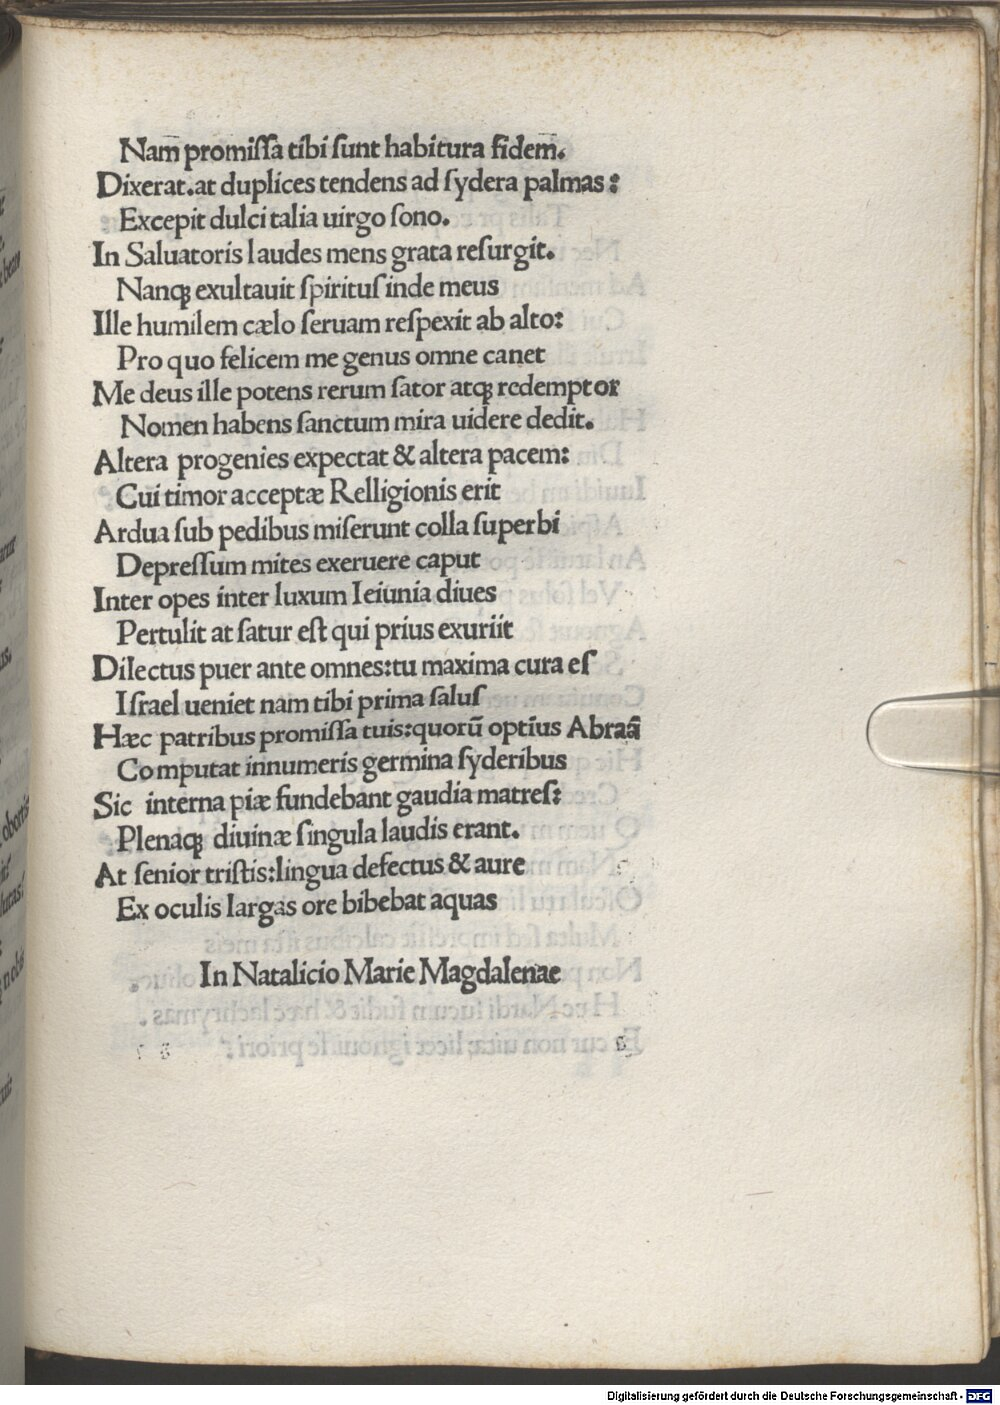 Nam̅ promiſſa tibi ſunt habitura fidem̅.
Dixerat.at duplices tendens ad ſydera palmas :
Excepit dulci talia uirgo ſono.
In Saluatoris laudes mens grata reſurgit.
Nanqꝫ exultauit ſpirituſ inde meus
Ille humilem cælo ſeruam reſpexit ab alto:
Pro quo felicem me genus omne canet
Me deus ille potens rerum ſator atqꝫ redemptor
Nomen habens ſanctum mira uidere dedit.
Altera progenies expectat & altera pacem:
Cui timor acceptæ Relligionis erit
Ardua ſub pedibus miſerunt colla ſuperbi
Depreſſum mites exeruere caput
Inter opes inter luxum Ieiunia diues
Pertulit at ſatur eſt qui prius exuriit
Dilectus puer ante omnes:tu maxima cura eſ
Iſrael ueniet nam tibi prima ſaluſ
Hæc patribus promiſſa tuis:quorū optīus Abraā
Computat innumeris germina ſyderibus
Sic interna piæ fundebant gaudia matreſ:
Plenaqꝫ diuinæ ſingula laudis erant.
At ſenior triſtis:lingua defectus & aure
Ex oculis largas ore bibebat aquas
In Natalicio Marie Magdalenae
Digitalisierung gefördert durch die Deutsche Forschungsgemeinschaft - DFG